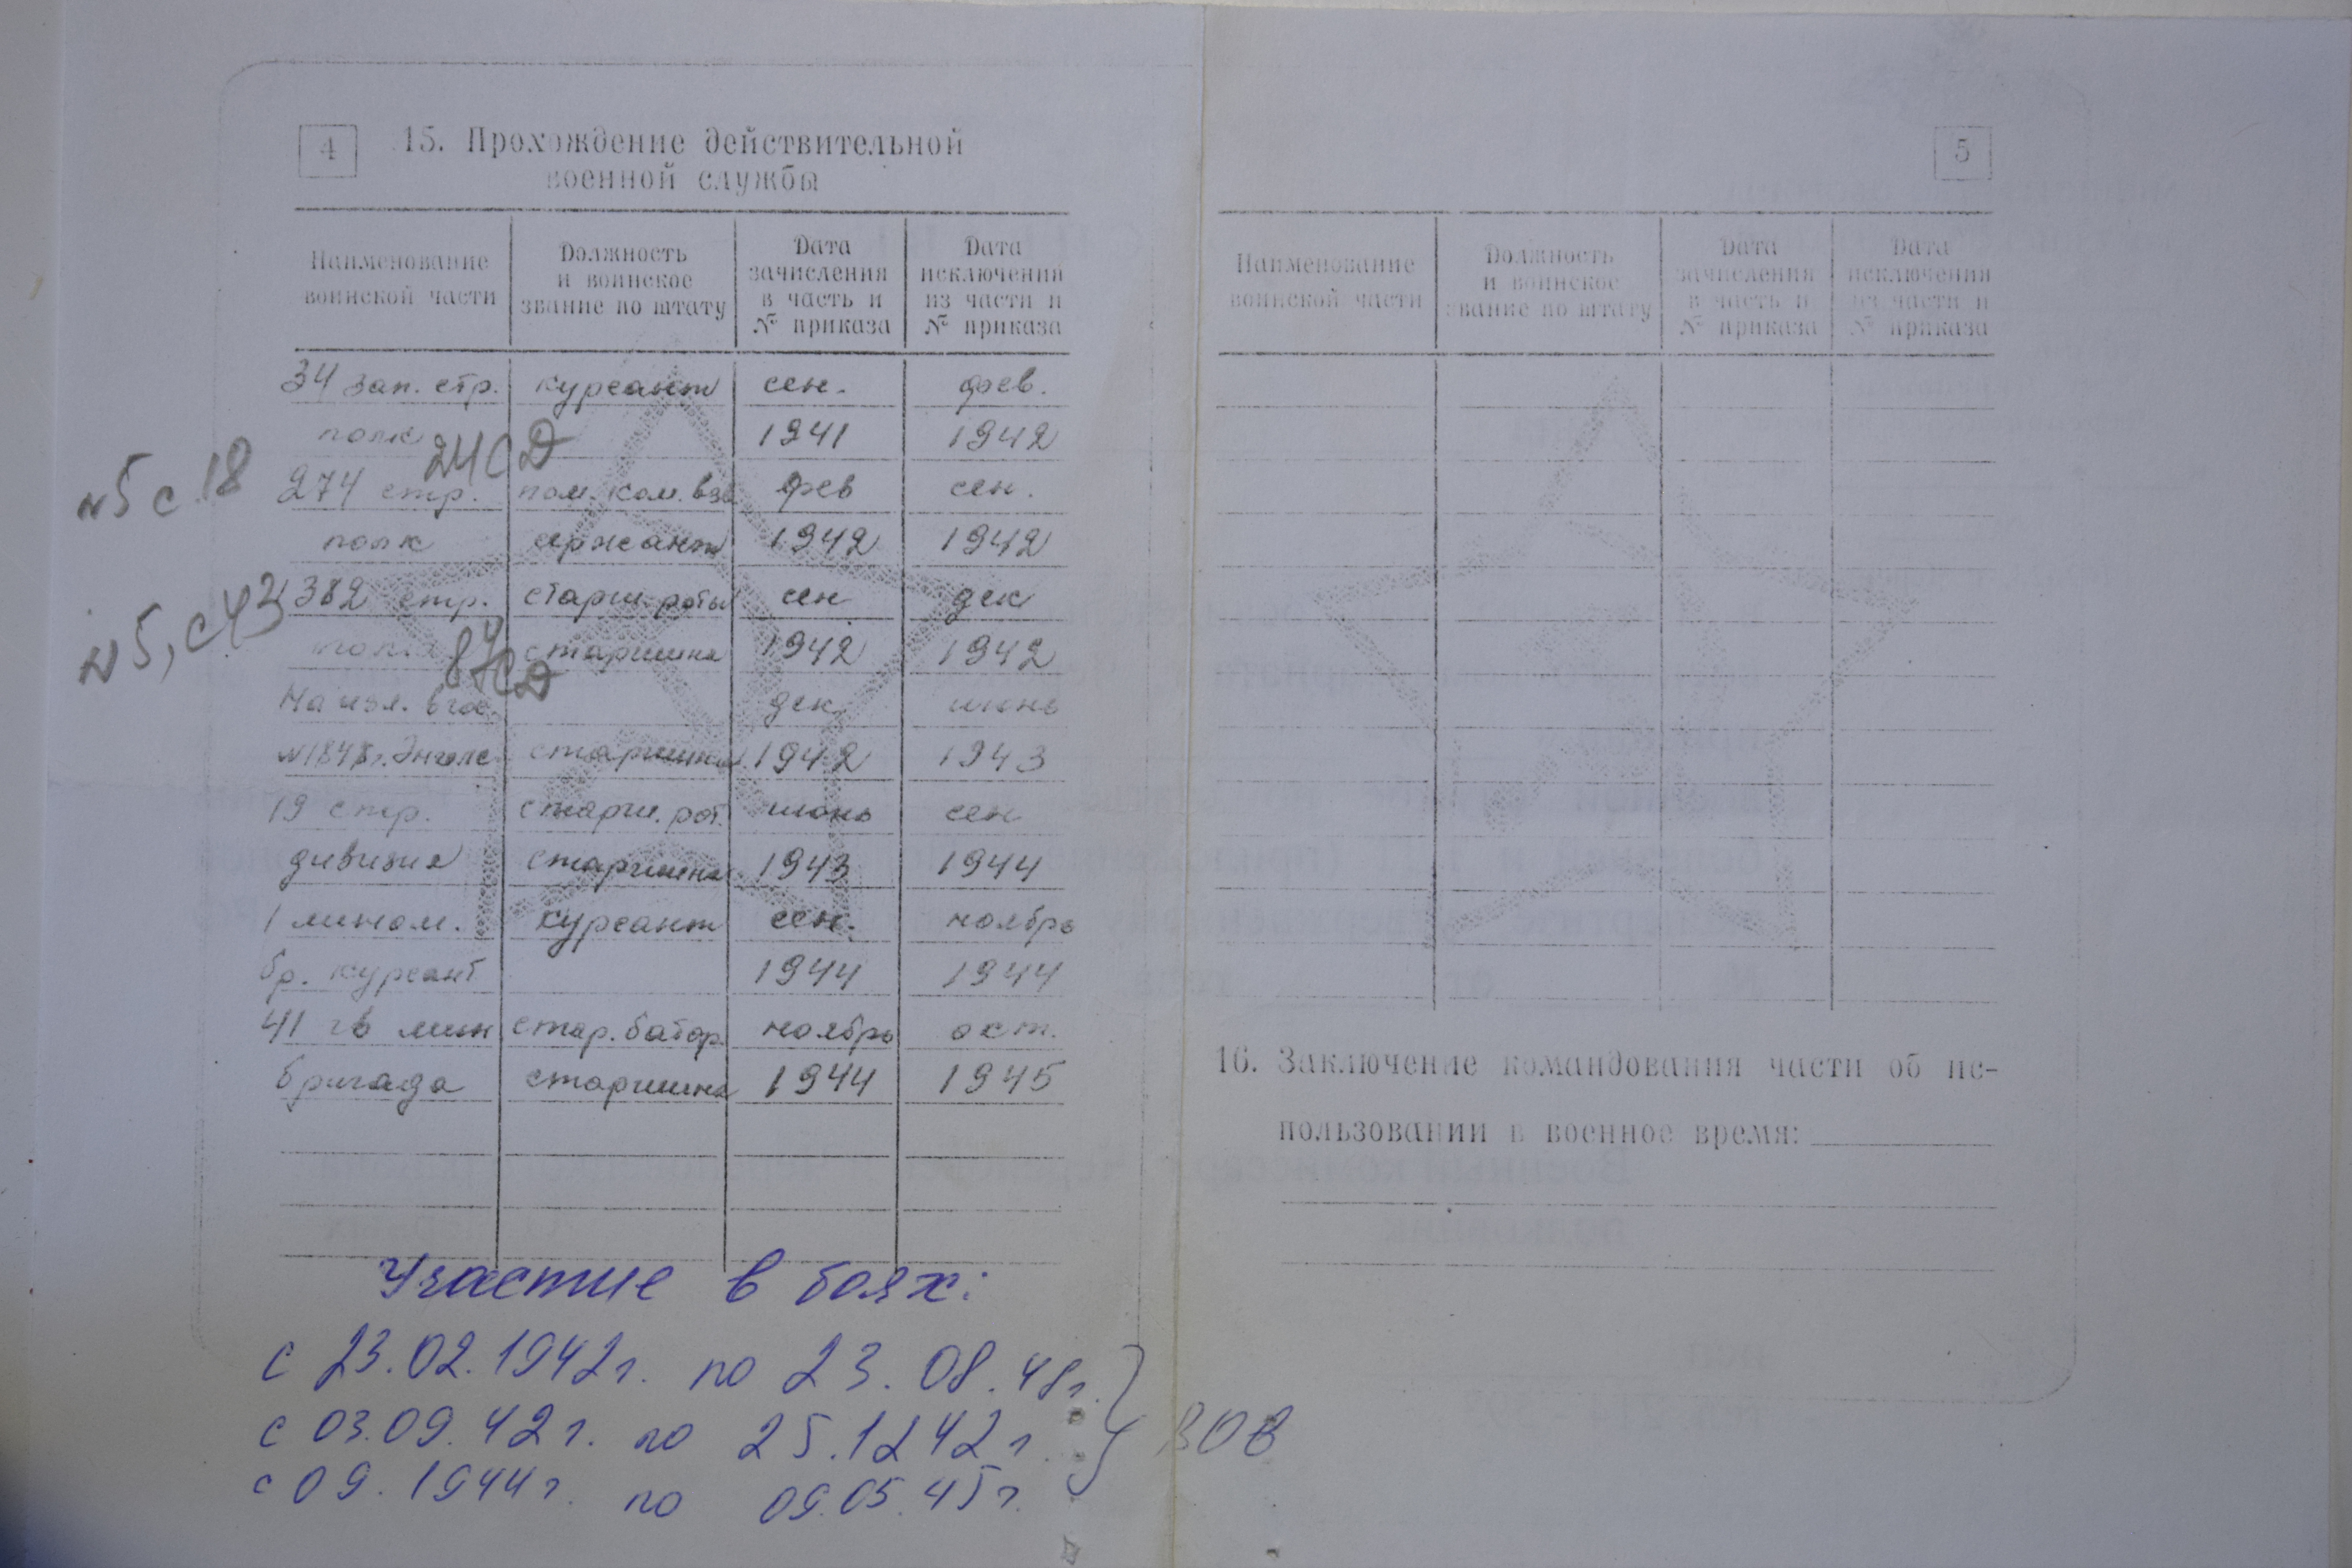 4
15. Прохождение действительной
военной службы
Наименование
воинской части
Должность
и воинское
звание по штату
Дата
зачисления
в часть и
№ приказа
Дата
исключения
из части и
№ приказа
34 зап. стр. курсант сен. фев.
полк 1941 1942
24СД
№5 с 18
274 стр. пом. ком. взв фев сен.
полк сержант 1942 1942
№5, с43
382 стр. старш. роты сен дек
полк старшина 1942 1942
87СД
На изл. в гос. дек. июнь
№1848 г. Энгельс старшина 1942 1943
19 стр. старш. рот. июнь сен
дивизия старшина 1943 1944
1 мином. курсант сен. ноябрь
бр. курсант 1944 1944
41 гв мин стар. батар. ноябрь окт.
бригада старшина 1944 1945
Участие в боях:
с 23.02.1942г. по 23.08.48г.
с 03.09.42г. по 25.1242г
с 09.1944г. по 09.05.45г.
ВОВ
5
Наименование
воинской части
Должность
и воинское
звание по штату
Дата
зачисления
в часть и
№ приказа
Дата
исключения
из части и
№ приказа
16. Заключение командования части об ис-
пользовании в военное время: